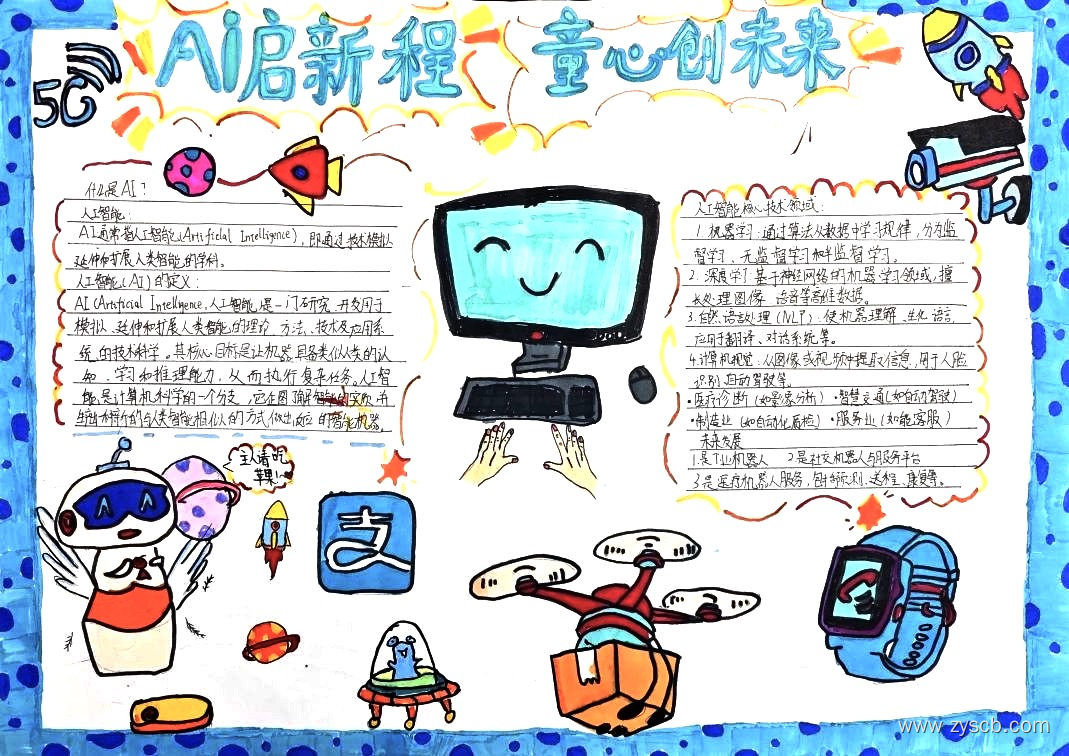 AI启新程 童心创未来
5G
什么是AI？
人工智能：
AI通常指人工智能(Artificial Intelligence)，即通过技术模拟
延伸和扩展人类智能的学科。
人工智能(AI)的定义：
AI(Artificial Intelligence,人工智能)是一门研究、开发用于
模拟、延伸和扩展人类智能的理论、方法、技术及应用系
统的技术科学。其核心目标是让机器具备类似人类的认
知、学习和推理能力，从而执行复杂任务。人工智
能是计算机科学的一个分支，它企图了解智能的实质,并
生产出新的与人类智能相似的方式做出反应的智能机器。
人工智能核心技术领域：
1.机器学习：通过算法从数据中学习规律，分为监
督学习、无监督学习和半监督学习。
2.深度学习：基于神经网络的机器学习领域，擅
长处理图像、语音等高维数据。
3.自然语言处理(NLP)：使机器理解、生化语言,
应用于翻译、对话系统等。
4.计算机视觉：从图像或视频中提取信息,用于人脸
识别、自动驾驶等。
·医疗诊断(如影像分析) ·智慧交通(如自动驾驶)
·制造业(如自动化质检) ·服务业(如智能客服)
未来发展
1.是工业机器人 2.是社交机器人与服务平台
3.是医疗机器人服务，包括预测、送程、康复等。
主人请吃
苹果!
支
www.zyscb.com